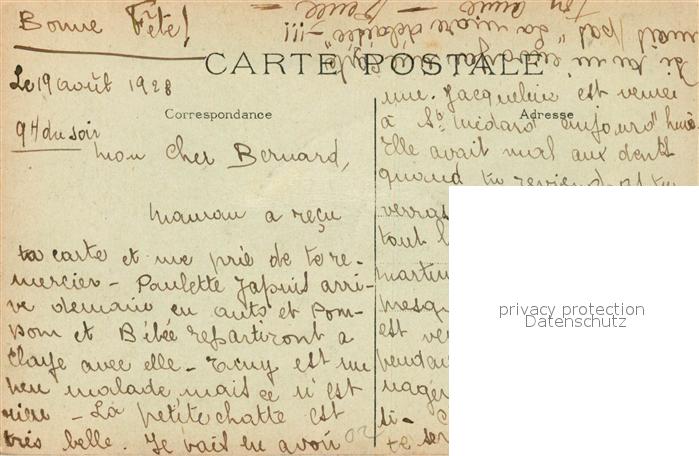 Bonne Fête!
CARTE POSTALE
Le 19 août 1928
Correspondance
Adresse
9H du soir
mon Cher Bernard,
maman a reçu
ta carte et me prie de te re-
mercier - Paulette Japuis arri-
ve demain en auto et Pom-
pom et Bébée repartiront a
Claye avec elle - est un
peu malade mais ce n'est
rien - La petite chatte est
très belle. Je vais en avoir
une. Jacqueline est venue
à St. Médard aujourd'hui
Elle avait mal aux dents
quand tu
verras
tout l
martin
presq
est ve
pendan
nager
si - 
te ser
pas "La mare "
!!!
privacy protection
Datenschutz